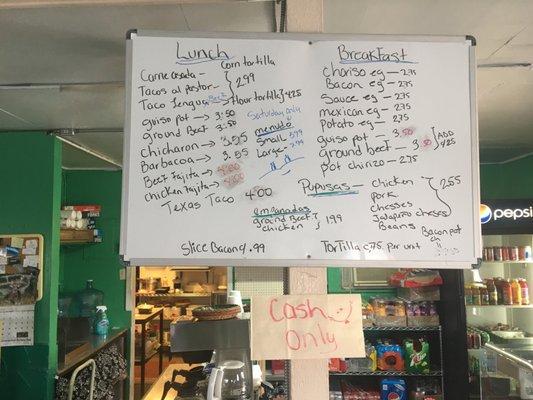 Lunch
Corn tortilla
Carne asada -
Tacos al pastor - 2.99
Taco Lengua Beef
Flour tortilla 4.25
guiso pot → 3.50
ground Beef 3.50
Chicharon → 3.55
Barbacoa → 3.55
Beef Fajita → 4.00
chicken fajita → 4.00
Texas Taco 4.00
Saturday only
menudo
Small 5.99
Large -
empanadas
ground Beef
chicken 1.99
Slice Bacon 4.99
Breakfast
choriso eg - 2.75
Bacon eg - 2.75
Sauce eg - 2.75
mexican eg - 2.75
Potato eg - 2.75
guiso pot - 3.50
ground beef - 3.50
ADD
4.25
pot chirizo - 2.75
Pupusas - chicken
pork
chesses
Jalapeño chesses
Beans
2.55
Bacon pot
ch
Tortilla c,75 per unit
Cash
Only
pepsi